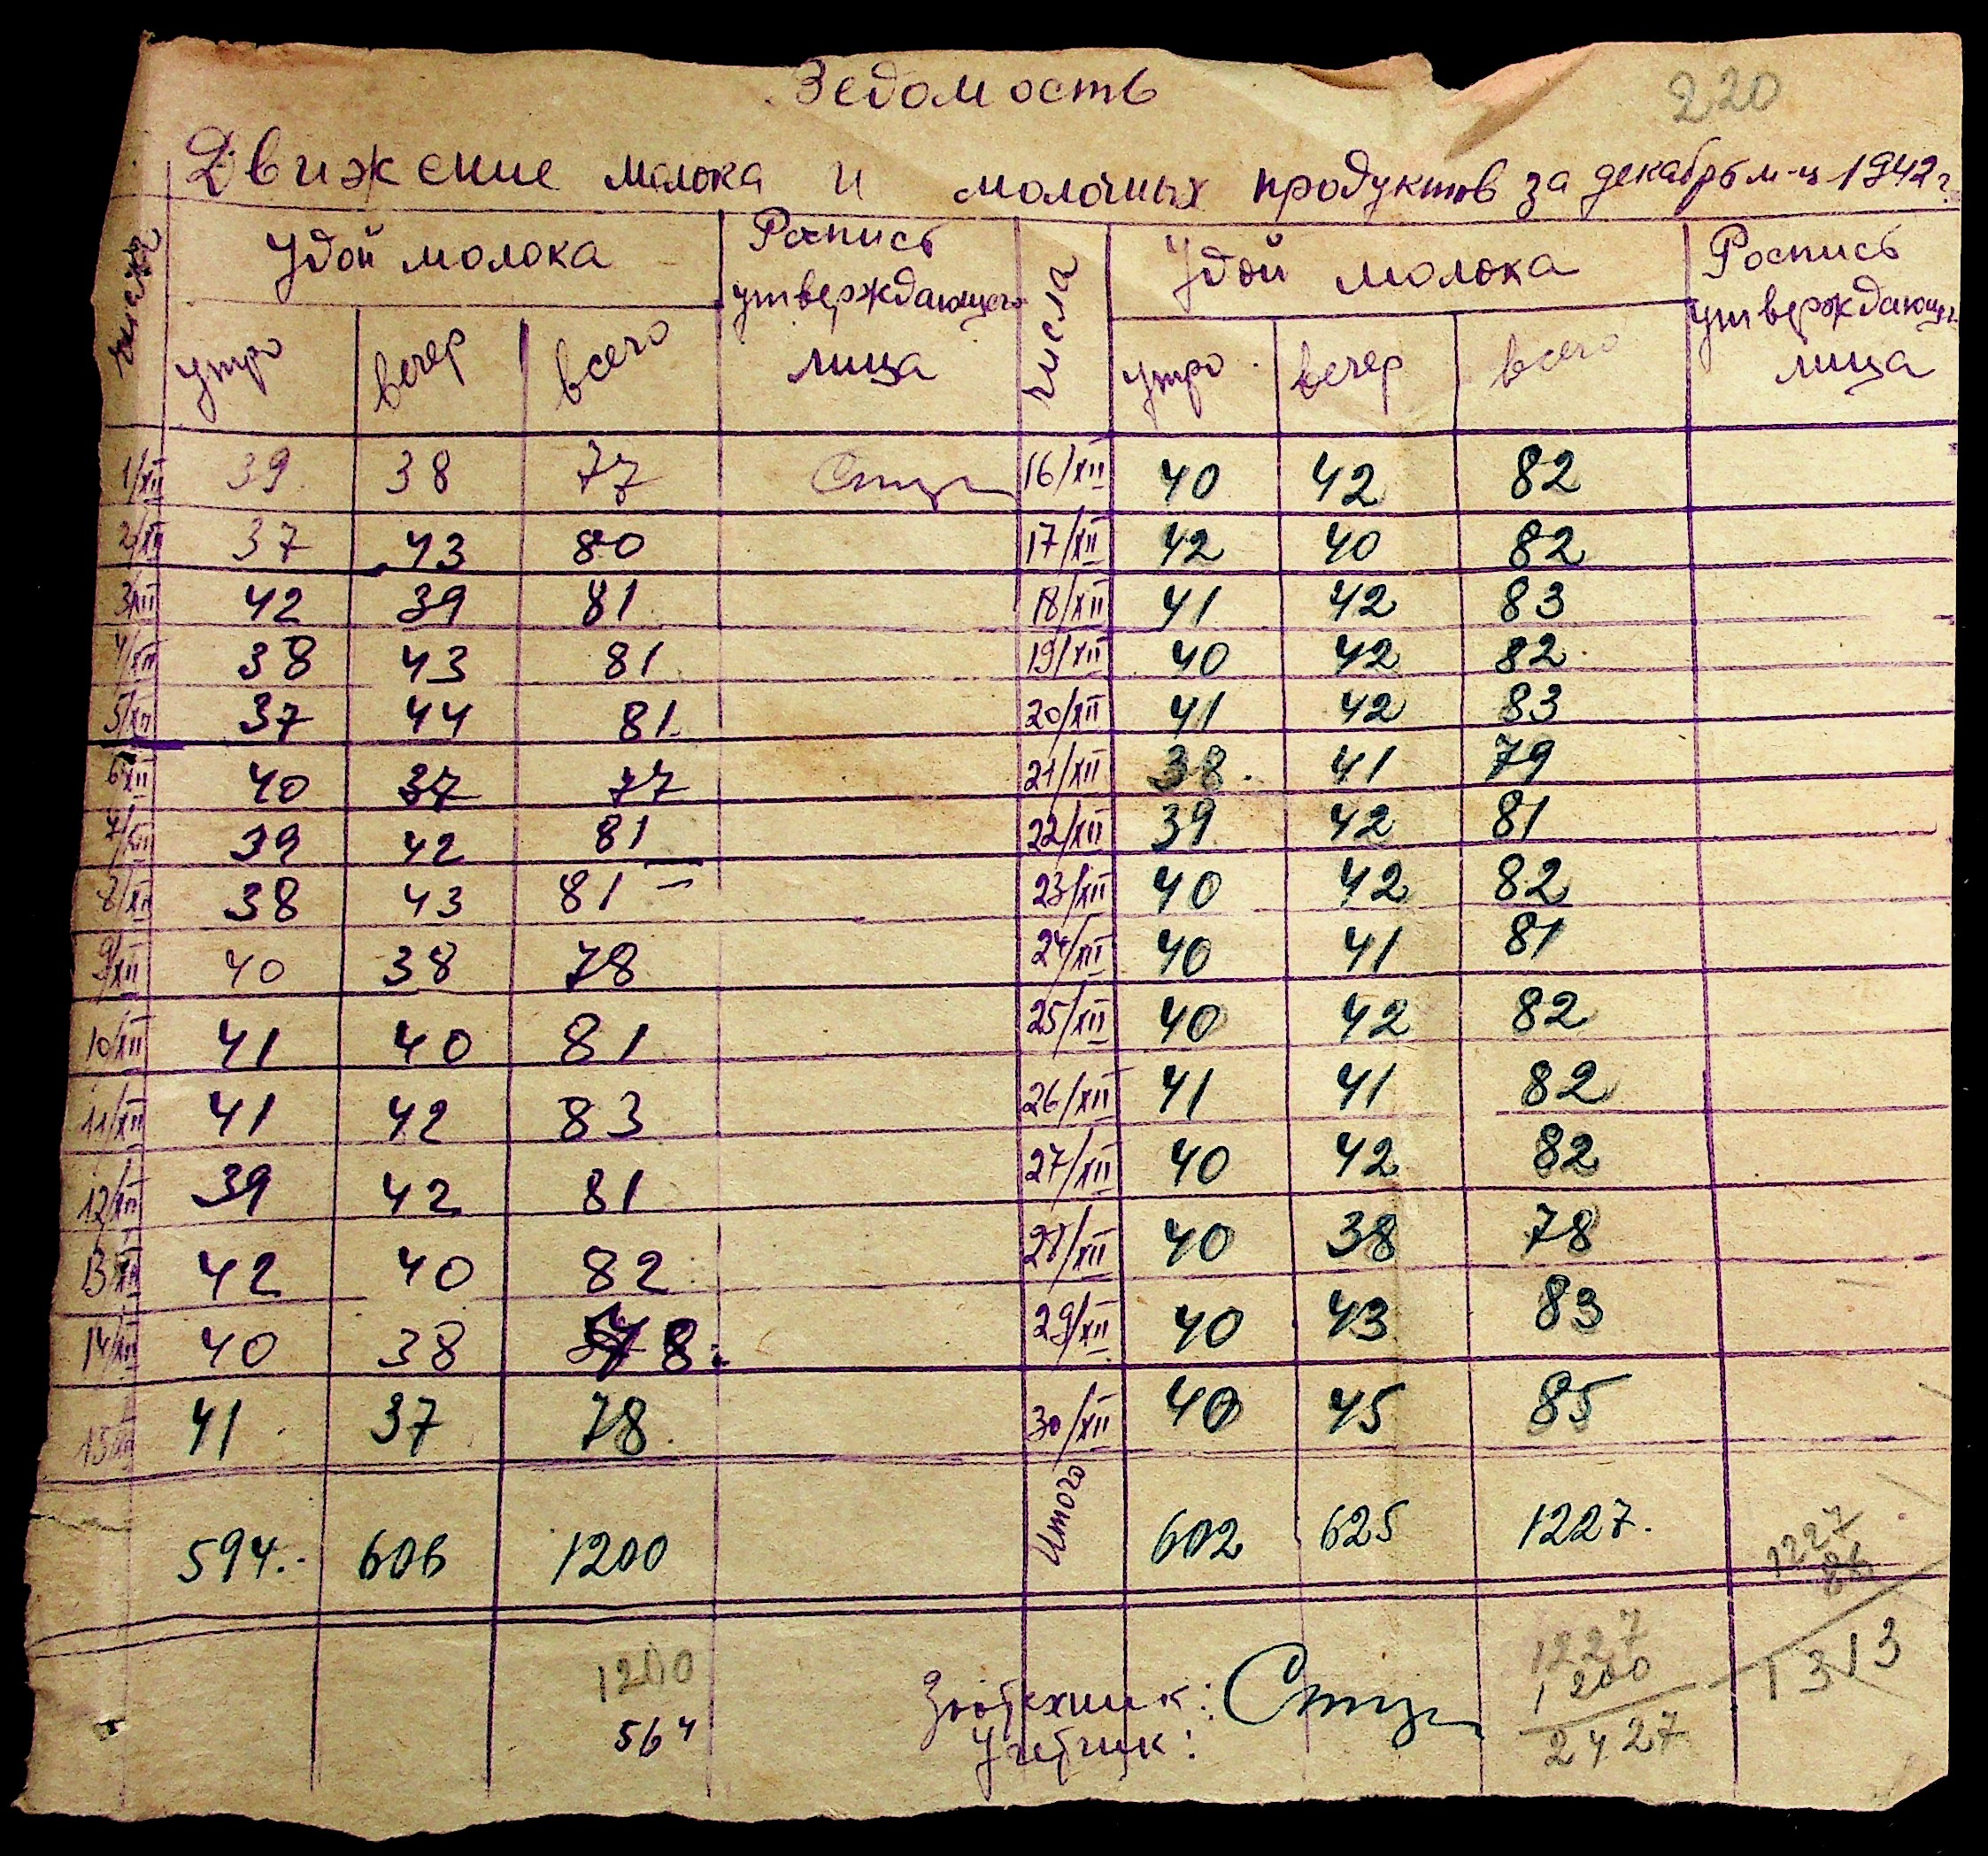 Ведомость
220
Движение молока и молочных продуктов за декабрь м-ц 1942 г.
числа Удой молока Роспись утверждающего лица числа Удой молока Роспись утверждающего лица
утро вечер всего утро вечер всего
1/XII 39 38 77 16/XII 40 42 82
2/XII 37 43 80 17/XII 42 40 82
3/XII 42 39 81 18/XII 41 42 83
4/XII 38 43 81 19/XII 40 42 82
5/XII 37 44 81 20/XII 41 42 83
6/XII 40 37 77 21/XII 38 41 79
7/XII 39 42 81 22/XII 39 42 81
8/XII 38 43 81 23/XII 40 42 82
9/XII 40 38 78 24/XII 40 41 81
10/XII 41 40 81 25/XII 40 42 82
11/XII 41 42 83 26/XII 41 41 82
12/XII 39 42 81 27/XII 40 42 82
13/XII 42 40 82 28/XII 40 38 78
14/XII 40 38 78 29/XII 40 43 83
15/XII 41 37 78 30/XII 40 45 85
594 606 1200 Итого 602 625 1227
1227
86
1313
1200
564
1227
1200
2427
Зоотехник:
Учетчик: